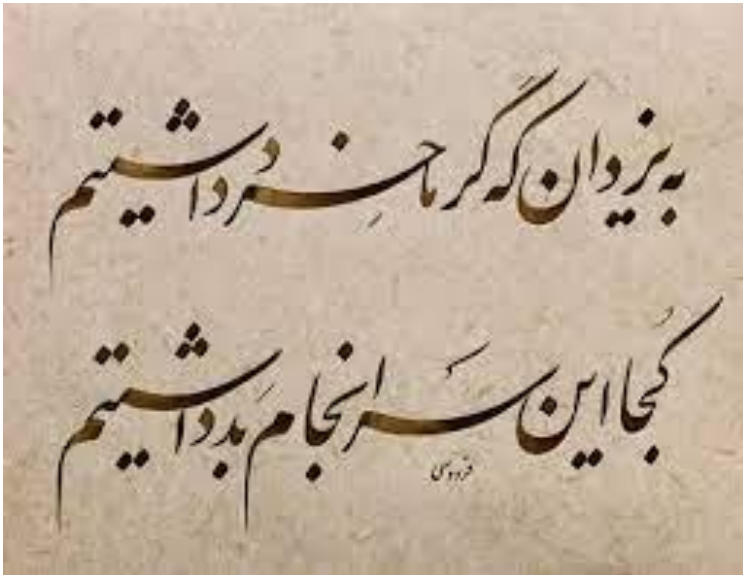 به یزدان که گر ما خرد داشتیم
کجا این سرانجام بد داشتیم
فردوسی